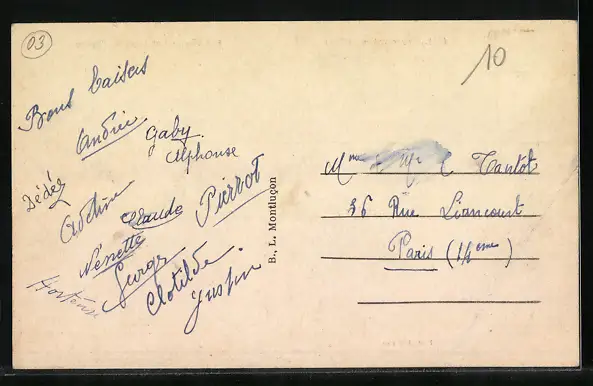 03
10
Bons baisers
Andrée
Gaby
Alphonse
Dédée
Claude
Pierrot
Nénette
Serge
Hortense
Clotilde
Justin
B., L. Montluçon
Mme & Mr Tantôt
36 Rue Liancourt
Paris (14ème)